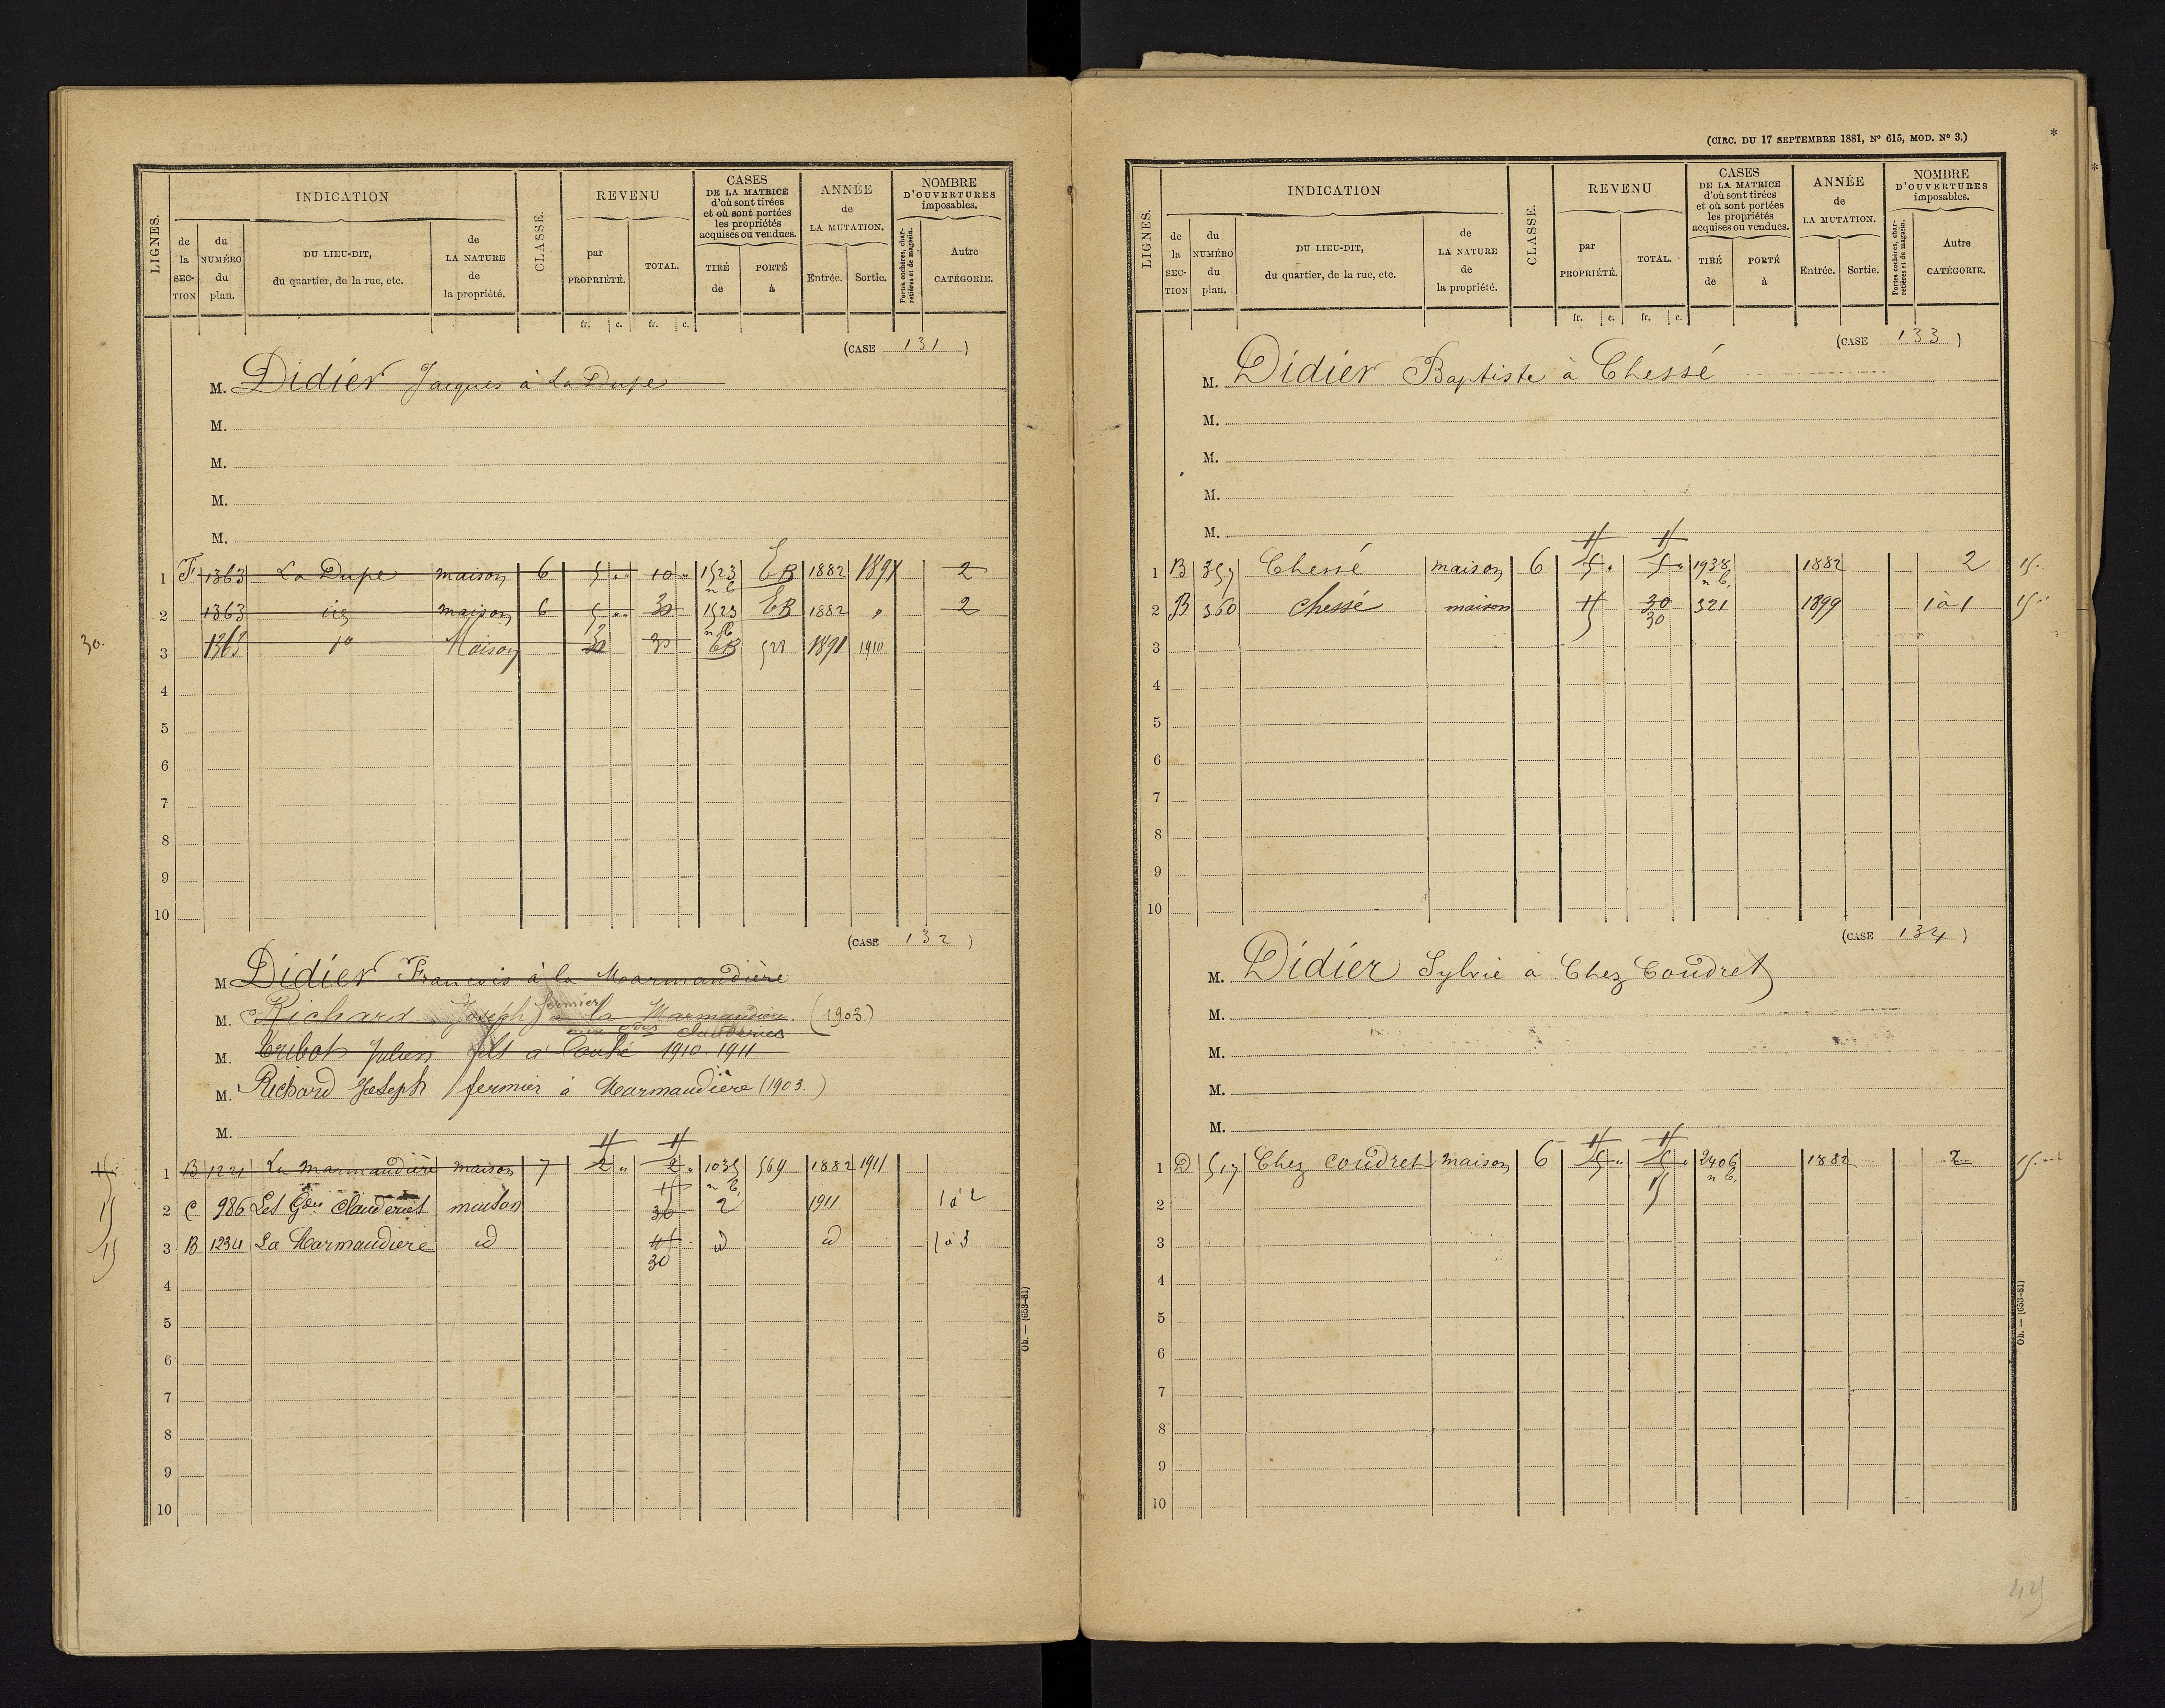 LIGNES.
INDICATION
de la SECTION
du NUMÉRO du plan.
DU LIEU-DIT, du quartier, de la rue, etc.
de LA NATURE de la propriété.
CLASSE.
REVENU
par PROPRIÉTÉ.
TOTAL.
CASES DE LA MATRICE d'où sont tirées et où sont portées les propriétés acquises ou vendues.
TIRÉ de
PORTÉ à
ANNÉE de LA MUTATION.
Entrée.
Sortie.
NOMBRE D'OUVERTURES imposables.
Portes cochères, charretières et de magasin.
Autre CATÉGORIE.
fr. c. fr. c.
(CASE 131)
M. Didier Jacques à La Dupe
M.
M.
M.
M.
1 F 1363 La Dupe maison 6 5 " 10 " 1523 n b EB 1882 1891 2
2 1363 maison 6 5 " 30 1523 n b EB 1882 " 2
30.
3 1363 Maison 30 30 EB 528 1891 1910
4
5
6
7
8
9
10
(CASE 132)
M. Didier François à la Marmandière
M. Richard Joseph fermier à la Marmandière. (1903)
M. Tribot Julien fils à 1910 1911
M. Richard Joseph fermier à Marmandière (1903.)
M.
1 B 1221 La Marmandière maison 7 2 " 2 " 1035 n b. 569 1882 1911
15 2 C 986 Les Gdes Clauderies maison 30 2 1911 1 à 2
15 3 B 1234 La Marmandière id 30 id id 1 à 3
4
5
6
7
8
9
10
Ob. — (653-81)
(CIRC. DU 17 SEPTEMBRE 1881, N° 615, MOD. N° 3.)
*
*
LIGNES.
INDICATION
de la SECTION
du NUMÉRO du plan.
DU LIEU-DIT, du quartier, de la rue, etc.
de LA NATURE de la propriété.
CLASSE.
REVENU
par PROPRIÉTÉ.
TOTAL.
CASES DE LA MATRICE d'où sont tirées et où sont portées les propriétés acquises ou vendues.
TIRÉ de
PORTÉ à
ANNÉE de LA MUTATION.
Entrée.
Sortie.
NOMBRE D'OUVERTURES imposables.
Portes cochères, charretières et de magasin.
Autre CATÉGORIE.
fr. c. fr. c.
(CASE 133)
M. Didier Baptiste à Chessé
M.
M.
M.
M.
1 B 357 Chessé maison 6 5 " 5 " 1938 n b. 1882 2 15
2 B 360 Chessé maison 15 30 30 321 1899 1 à 1 15
3
4
5
6
7
8
9
10
(CASE 134)
M. Didier Sylvie à Chez Coudret
M.
M.
M.
M.
1 D 517 Chez Coudret maison 6 5 " 5 " 2406 n b. 1882 2 15
15
2
3
4
5
6
7
8
9
10
Ob. — (653-81)